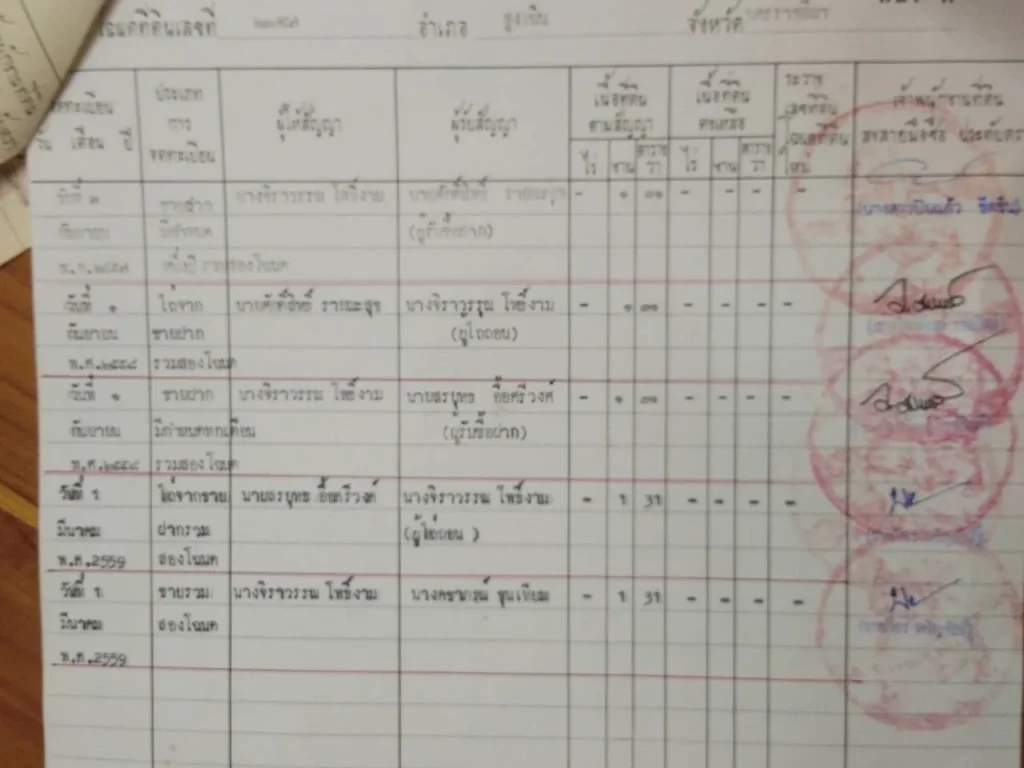 โฉนดที่ดินเลขที่ อำเภอ สูงเนิน จังหวัด นครราชสีมา
จดทะเบียน วัน เดือน ปี
ประเภทการจดทะเบียน
ผู้ให้สัญญา
ผู้รับสัญญา
เนื้อที่ดินตามสัญญา
ไร่ งาน ตารางวา
เนื้อที่ดินคงเหลือ
ไร่ งาน ตารางวา
ระวาง เลขที่ดิน โฉนดที่ดิน ใหม่
เจ้าพนักงานที่ดิน ลงลายมือชื่อ ประทับตรา
วันที่ ๓ ขายฝาก นางจิราวรรณ โพธิ์งาม นายศักดิ์สิทธิ์ - ๑ ๓๑ - - - -
กันยายน มีกำหนด (ผู้รับซื้อฝาก)
พ.ศ.๒๕๕๗ หนึ่งปี รวมสองโฉนด
วันที่ ๑ ไถ่จาก นายศักดิ์สิทธิ์ รายณะสุข นางจิราวรรณ โพธิ์งาม - ๑ ๓๑ - - - -
กันยายน ขายฝาก (ผู้ไถ่ถอน)
พ.ศ.๒๕๕๘ รวมสองโฉนด
วันที่ ๑ ขายฝาก นางจิราวรรณ โพธิ์งาม นายสรยุทธ อื้อศรีวงศ์ - ๑ ๓๑ - - - -
กันยายน มีกำหนดหกเดือน (ผู้รับซื้อฝาก)
พ.ศ.๒๕๕๘ รวมสองโฉนด
วันที่ 1 ไถ่จากขาย นายสรยุทธ อื้อศรีวงศ์ นางจิราวรรณ โพธิ์งาม - 1 31 - - - -
มีนาคม ฝากรวม (ผู้ไถ่ถอน )
พ.ศ.2559 สองโฉนด
วันที่ 1 ขายรวม นางจิราวรรณ โพธิ์งาม นางคชาภรณ์ ขุนเทียม - 1 31 - - - -
มีนาคม สองโฉนด
พ.ศ.2559